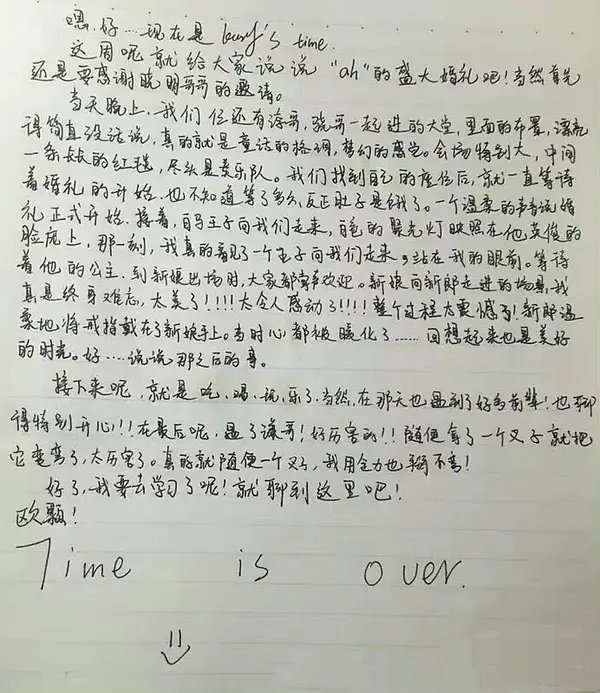 嗯.好....现在是 karry's time.
这周呢就给大家说说 "ah"的盛大婚礼吧!当然首先
还是要感谢晓明哥哥的邀请。
当天晚上.我们仨还有涛哥,骁哥一起进的大堂,里面的布置,漂亮
得简直没话说,真的就是童话的格调,梦幻的感觉。会场特别大,中间
一条长长的红毯,尽头是奏乐队。我们找到自己的座位后,就一直等待
着婚礼的开始.也不知道等了多久,反正肚子是饿了。一个温柔的声音说婚
礼正式开始.接着,白马王子向我们走来,白色的聚光灯映照在他英俊的
脸庞上,那一刻,我真的看见了一个王子向我们走来,站在我的眼前。等待
着他的公主.到新娘出场时,大家都掌声欢迎。新娘向新郎走进的场景,我
真是终身难忘,太美了!!!!太令人感动了!!!!整个过程太震憾了!新郎温
柔地将戒指戴在了新娘手上。当时心都被暖化了......回想起来也是美好
的时光。好....说说那之后的事。
接下来呢,就是吃、喝、玩、乐了.当然,在那天也遇到了好多前辈!也聊
得特别开心!!!在最后呢,遇了谦哥!好厉害的!!随便拿了一个叉子就把
它变弯了,太厉害了。真的就随便一个叉子,我用全力也掰不弯!
好了,我要去学习了呢!就聊到这里吧!
欧颗!
Time is over.